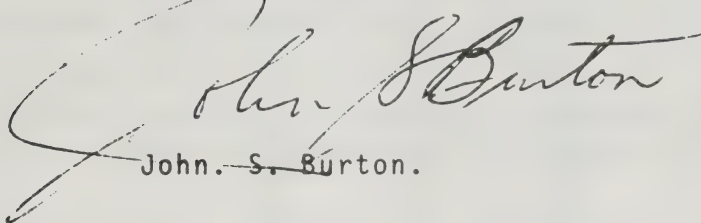 John S Burton
John. S. Burton.